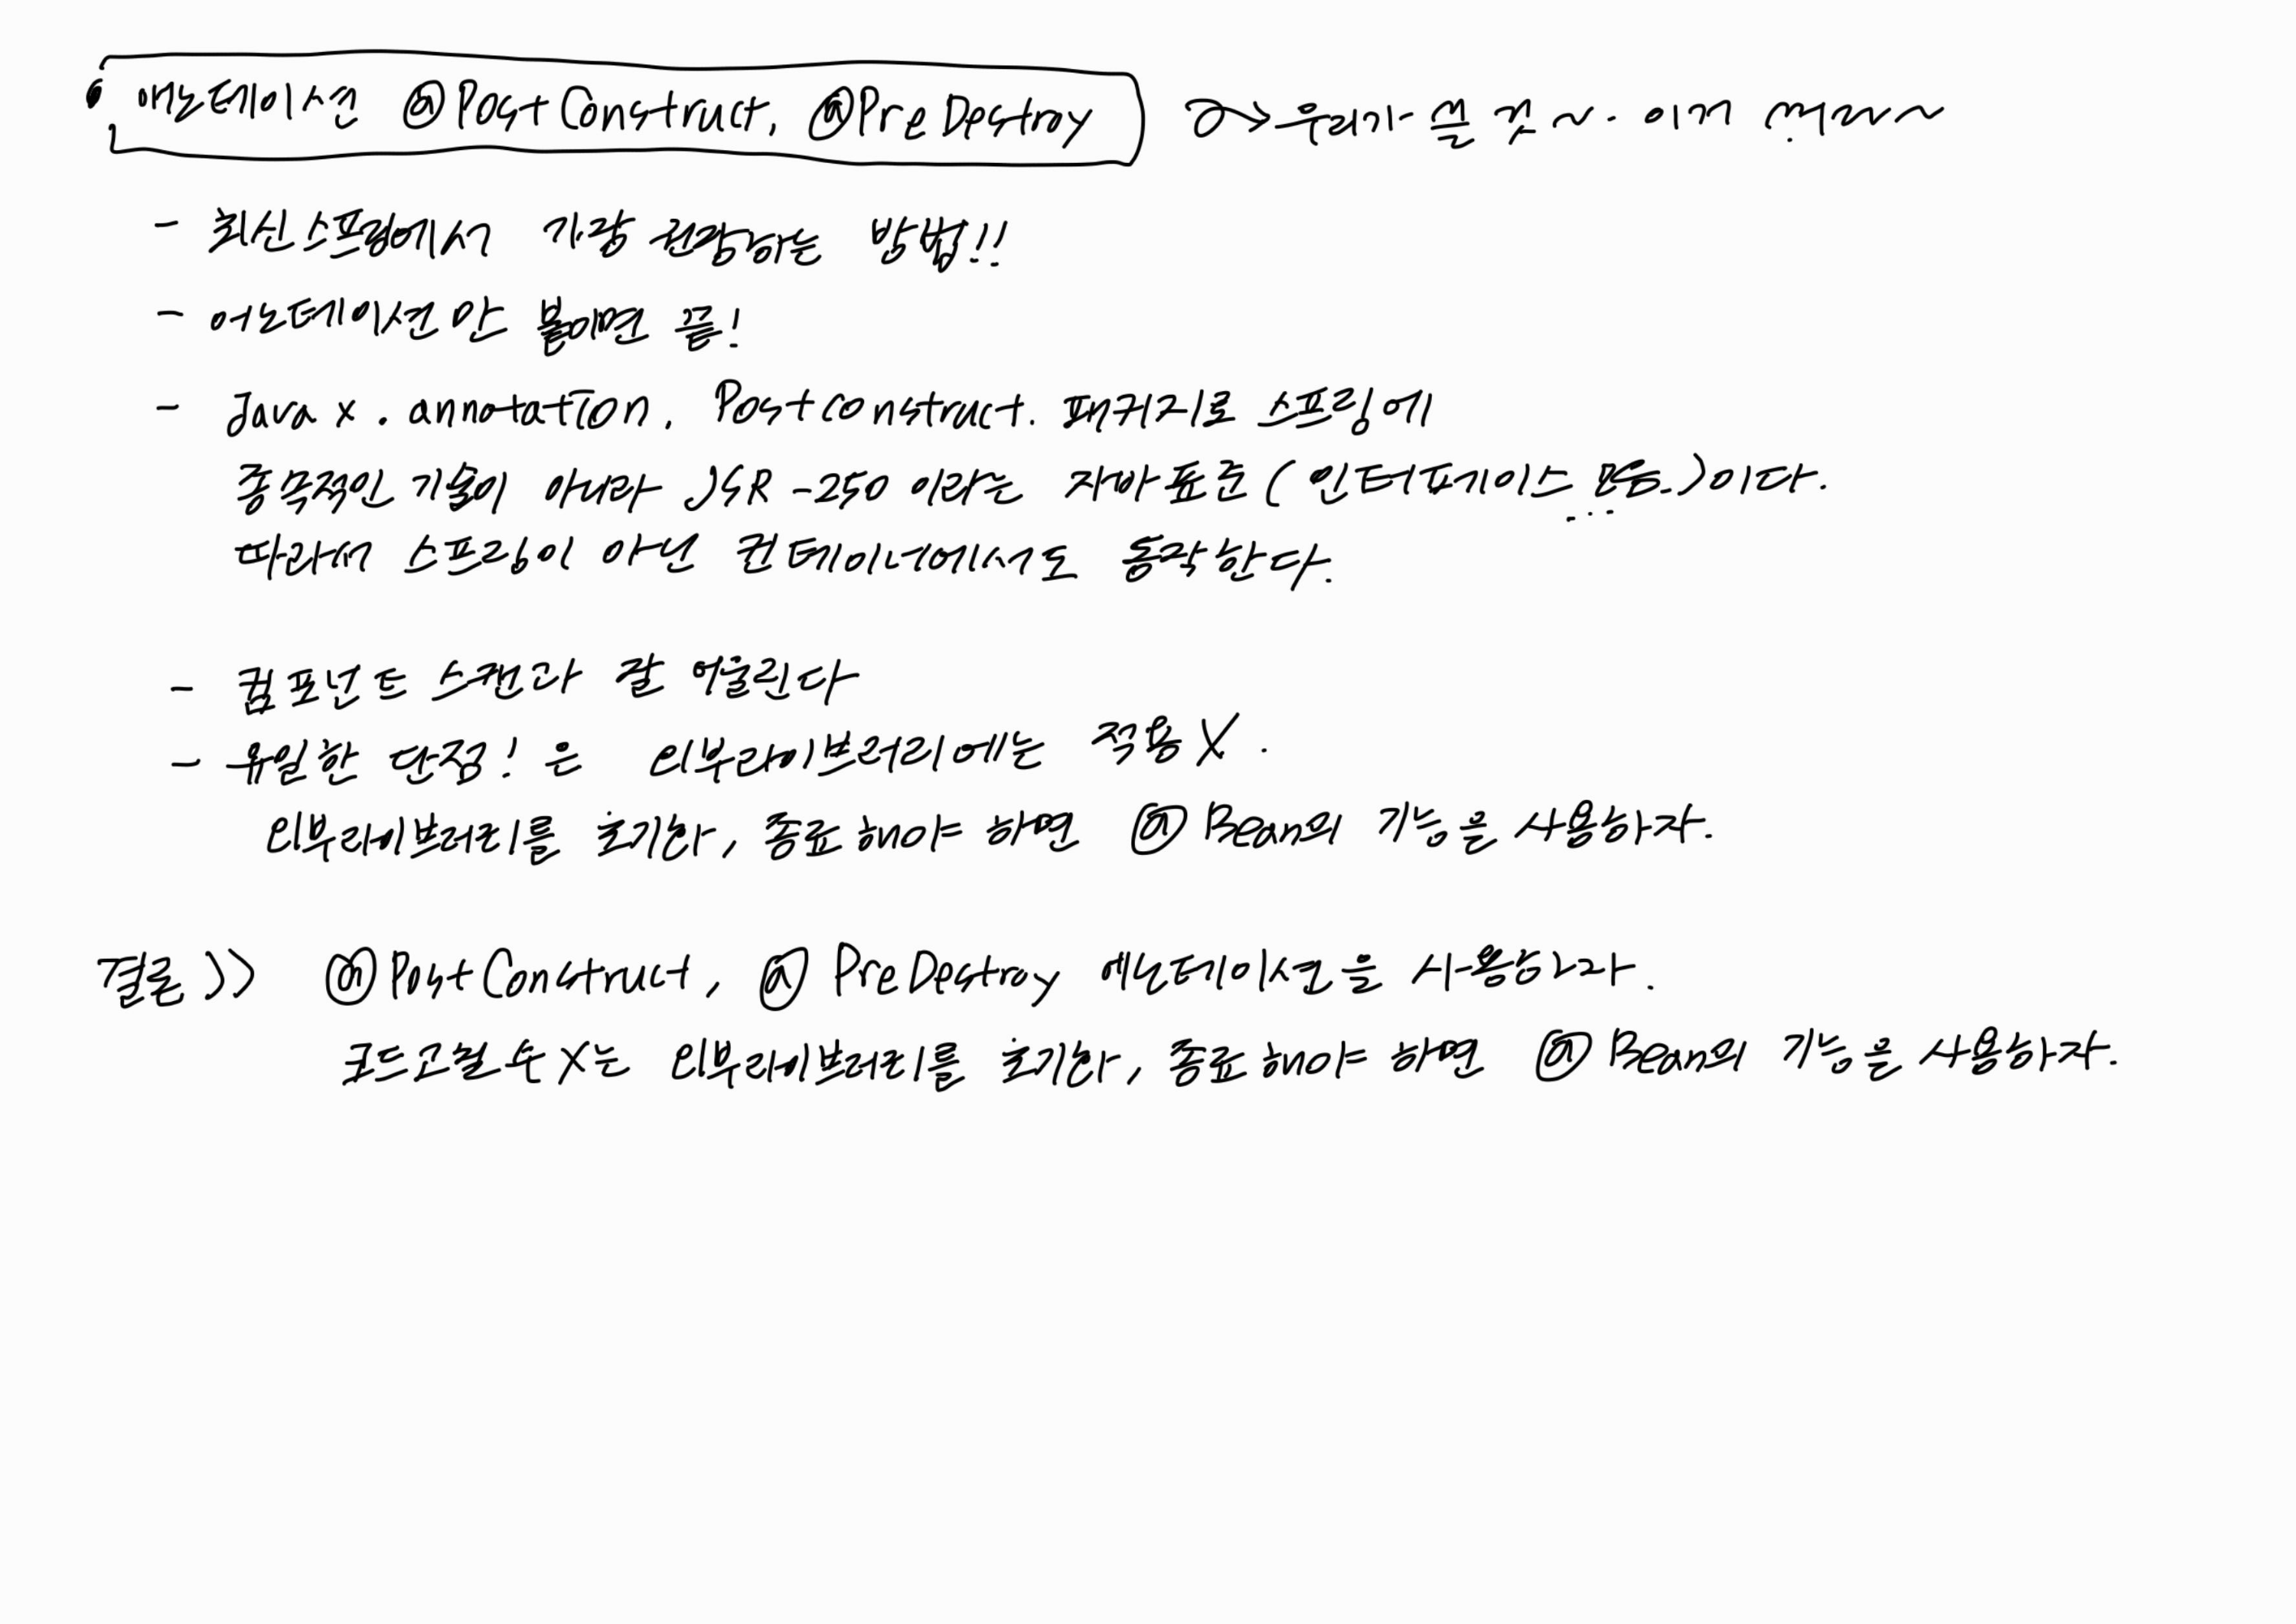 • 애노테이션 @PostConstruct, @PreDestroy → 우리가 쓸 것~. 이거 써라~
- 최신스프링에서 가장 권장하는 방법!!
- 어노테이션만 붙이면 끝!
- Javax.annotation.Postconstruct. 패키지로 스프링에
종속적인 기술이 아니라 JSR-250 이라는 자바표준(인터페이스 모음..)이다.
따라서 스프링이 아닌 컨테이너에서도 동작한다.
- 컴포넌트 스캔과 잘 어울린다
- 유일한 단점!은 외부라이브러리에는 적용X.
외부라이브러리를 초기화, 종료해야 하면 @Bean의 기능을 사용하자.
결론>> @PostConstruct, @PreDestroy 에노테이션을 사용하라.
코드고칠수X는 외부라이브러리를 초기화, 종료해야 하면 @Bean의 기능을 사용하자.